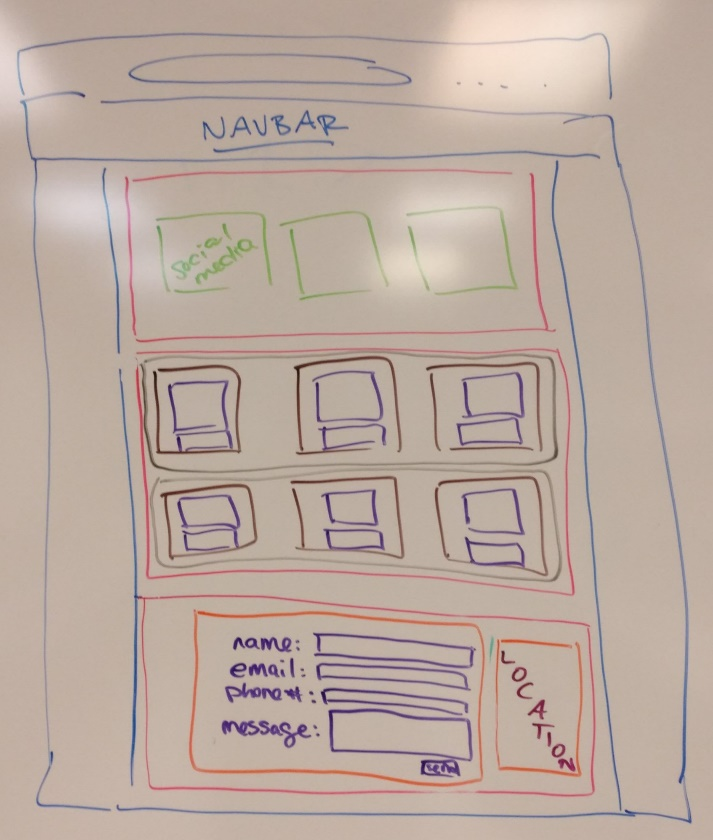 NAVBAR
social
media
name:
email:
phone#:
message:
LOCATION